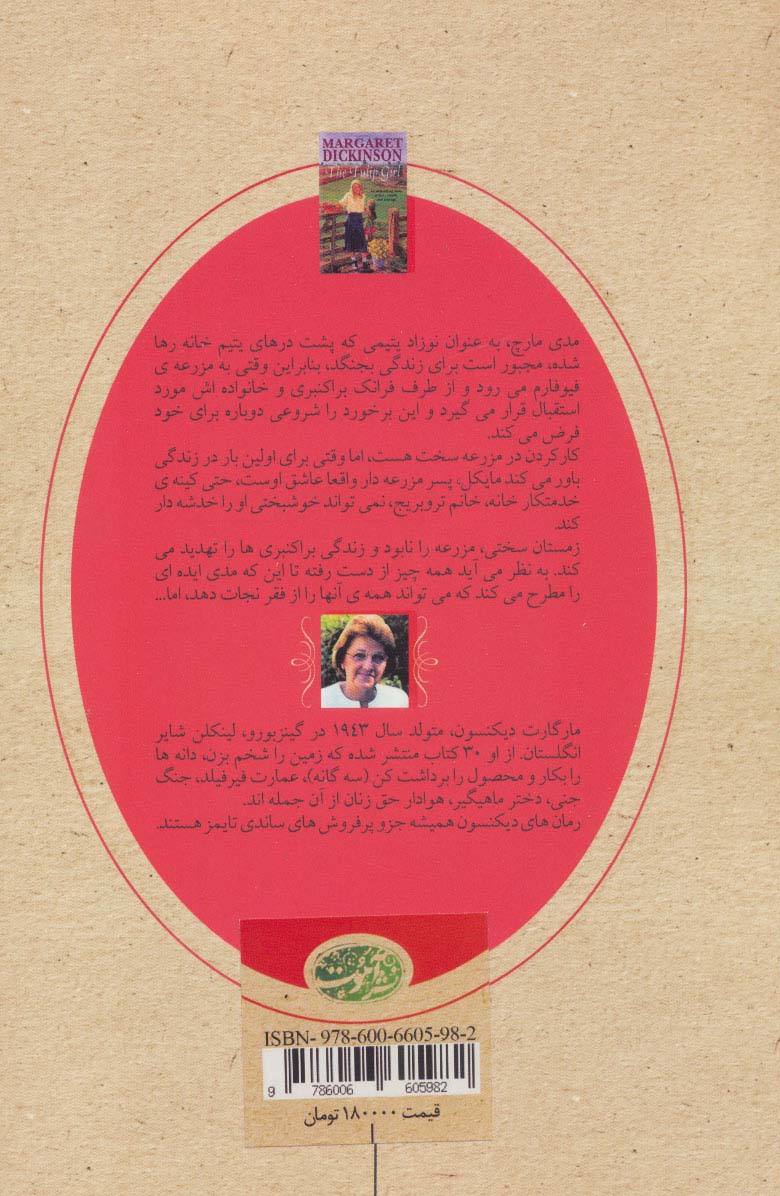 MARGARET
DICKINSON
The Tulip Girl
مدی مارچ، به عنوان نوزاد یتیمی که پشت درهای یتیم خانه رها
شده، مجبور است برای زندگی بجنگد، بنابراین وقتی به مزرعه ی
فیوفارم می رود و از طرف فرانک براکنبری و خانواده اش مورد
استقبال قرار می گیرد و این برخورد را شروعی دوباره برای خود
فرض می کند.
کارکردن در مزرعه سخت هست، اما وقتی برای اولین بار در زندگی
باور می کند مایکل، پسر مزرعه دار واقعا عاشق اوست، حتی کینه ی
خدمتکار خانه، خانم تروبریج، نمی تواند خوشبختی او را خدشه دار
کند.
زمستان سختی، مزرعه را نابود و زندگی براکنبری ها را تهدید می
کند. به نظر می آید همه چیز از دست رفته تا این که مدی ایده ای
را مطرح می کند که می تواند همه ی آنها را از فقر نجات دهد، اما...
مارگارت دیکنسون، متولد سال ۱۹٤۳ در گینزبورو، لینکلن شایر
انگلستان. از او ۳۰ کتاب منتشر شده که زمین را شخم بزن، دانه ها
را بکار و محصول را برداشت کن (سه گانه)، عمارت فیرفیلد، جنگ
جنی، دختر ماهیگیر، هوادار حق زنان از آن جمله اند.
رمان های دیکنسون همیشه جزو پرفروش های ساندی تایمز هستند.
ISBN- 978-600-6605-98-2
9 786006 605982
قیمت ۱۸۰۰۰۰ تومان